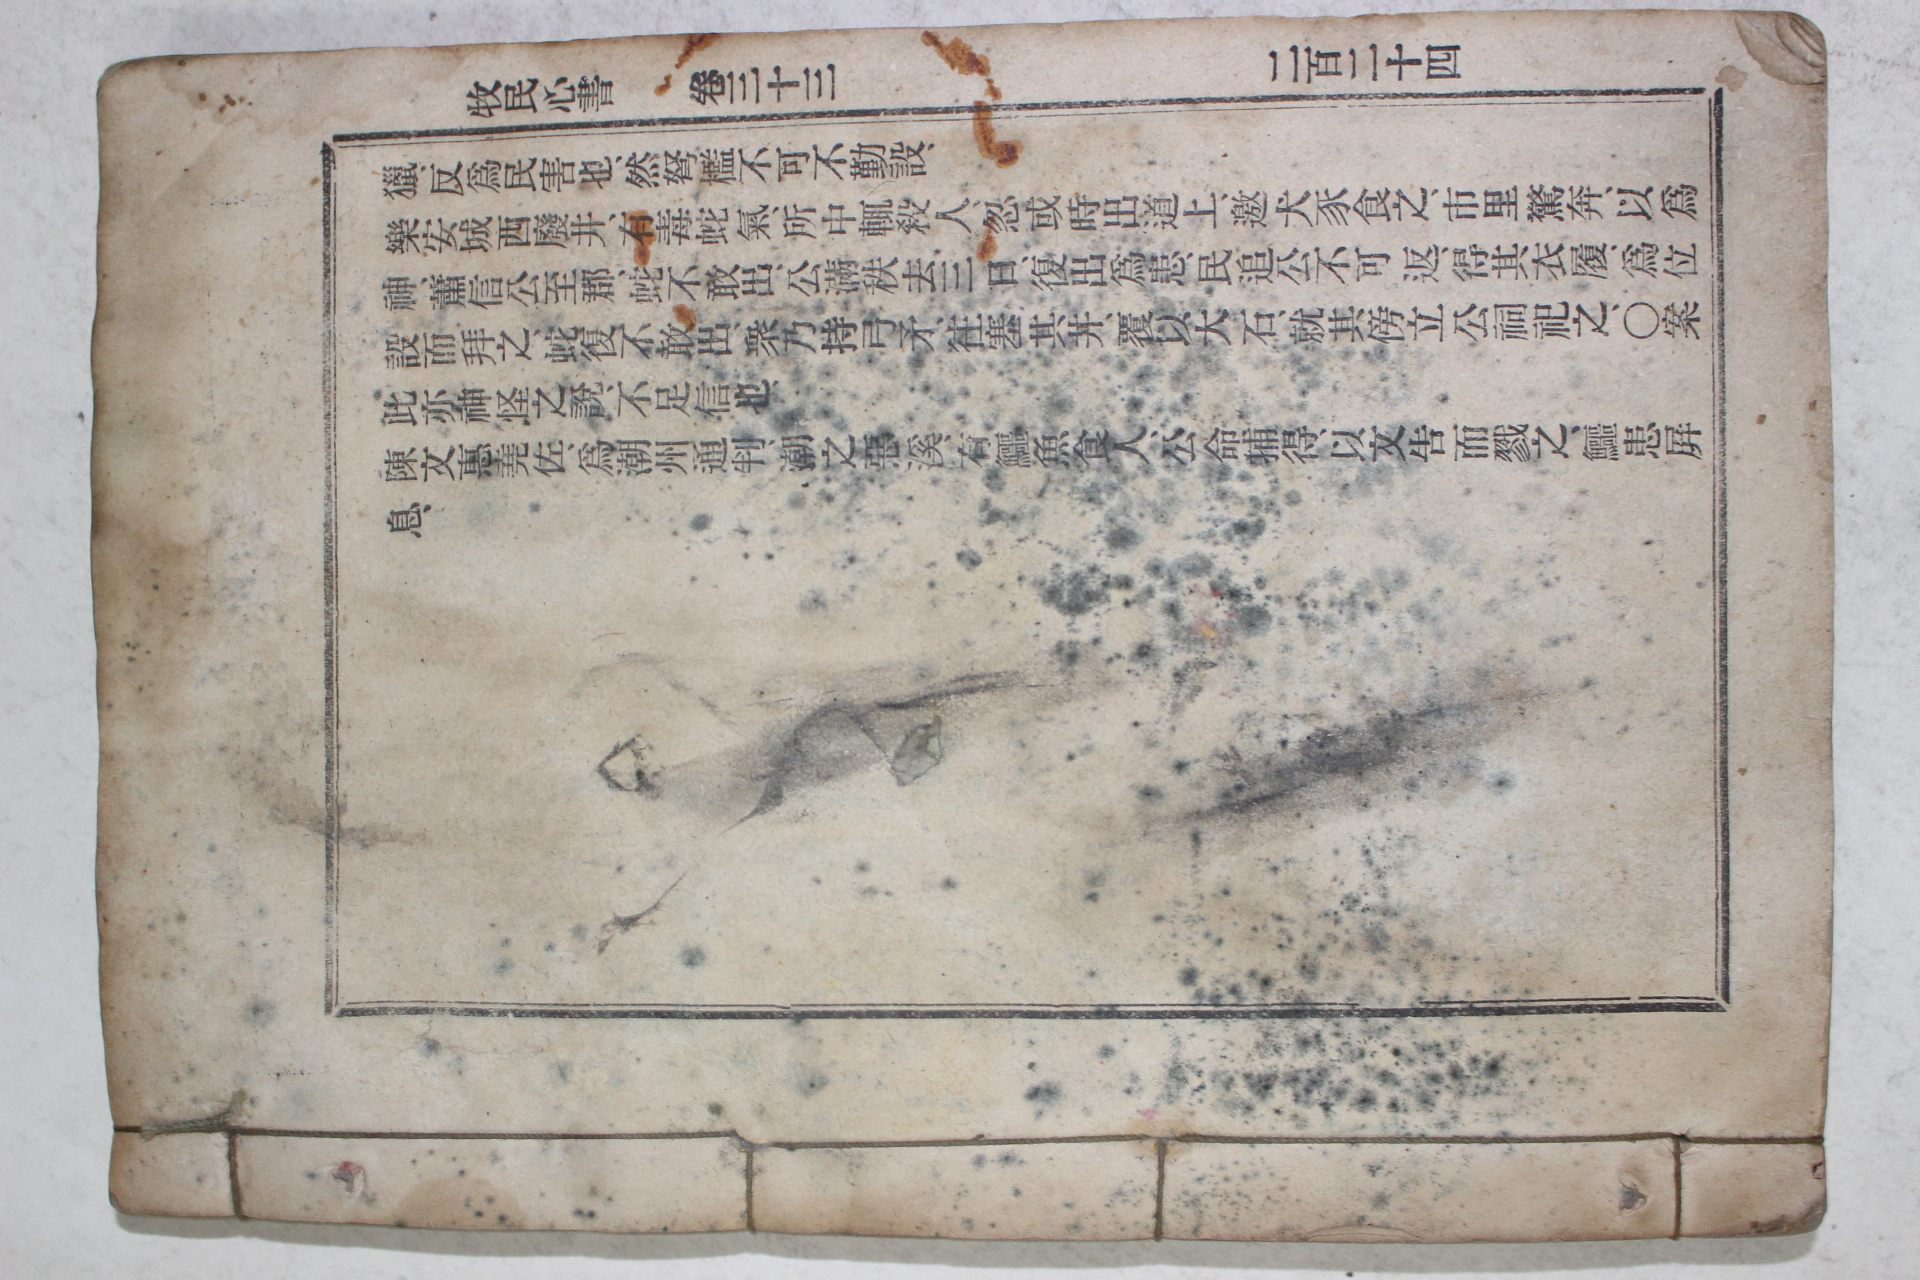 牧民心書 卷三十三 二百二十四
獵、反爲民害也、然弩檻不可不勤設、
樂安城西廢井、有毒蛇氣、所中輒殺人、忽或時出道上、邀犬豕食之、市里驚奔、以爲
神、蕭信公至郡、蛇不敢出、公滿秩去三日、復出爲患、民追公不可返、得其衣履、爲位
設而拜之、蛇復不敢出、衆乃持弓矛、往塞其井、覆以大石、就其傍立公祠祀之、〇案
此亦神怪之說、不足信也、
陳文惠堯佐、爲潮州通判、潮之惡溪、有鱷魚食人、公命捕得、以文告而戮之、鱷患屏
息、